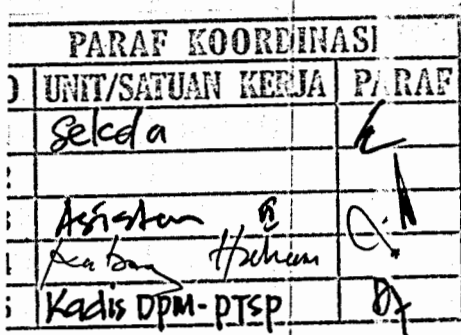 PARAF KOORDINASI
UNIT/SATUAN KERJA PARAF
Sekda
Asisten
3
Kabag Hukum
4
Kadis DPM-PTSP
5